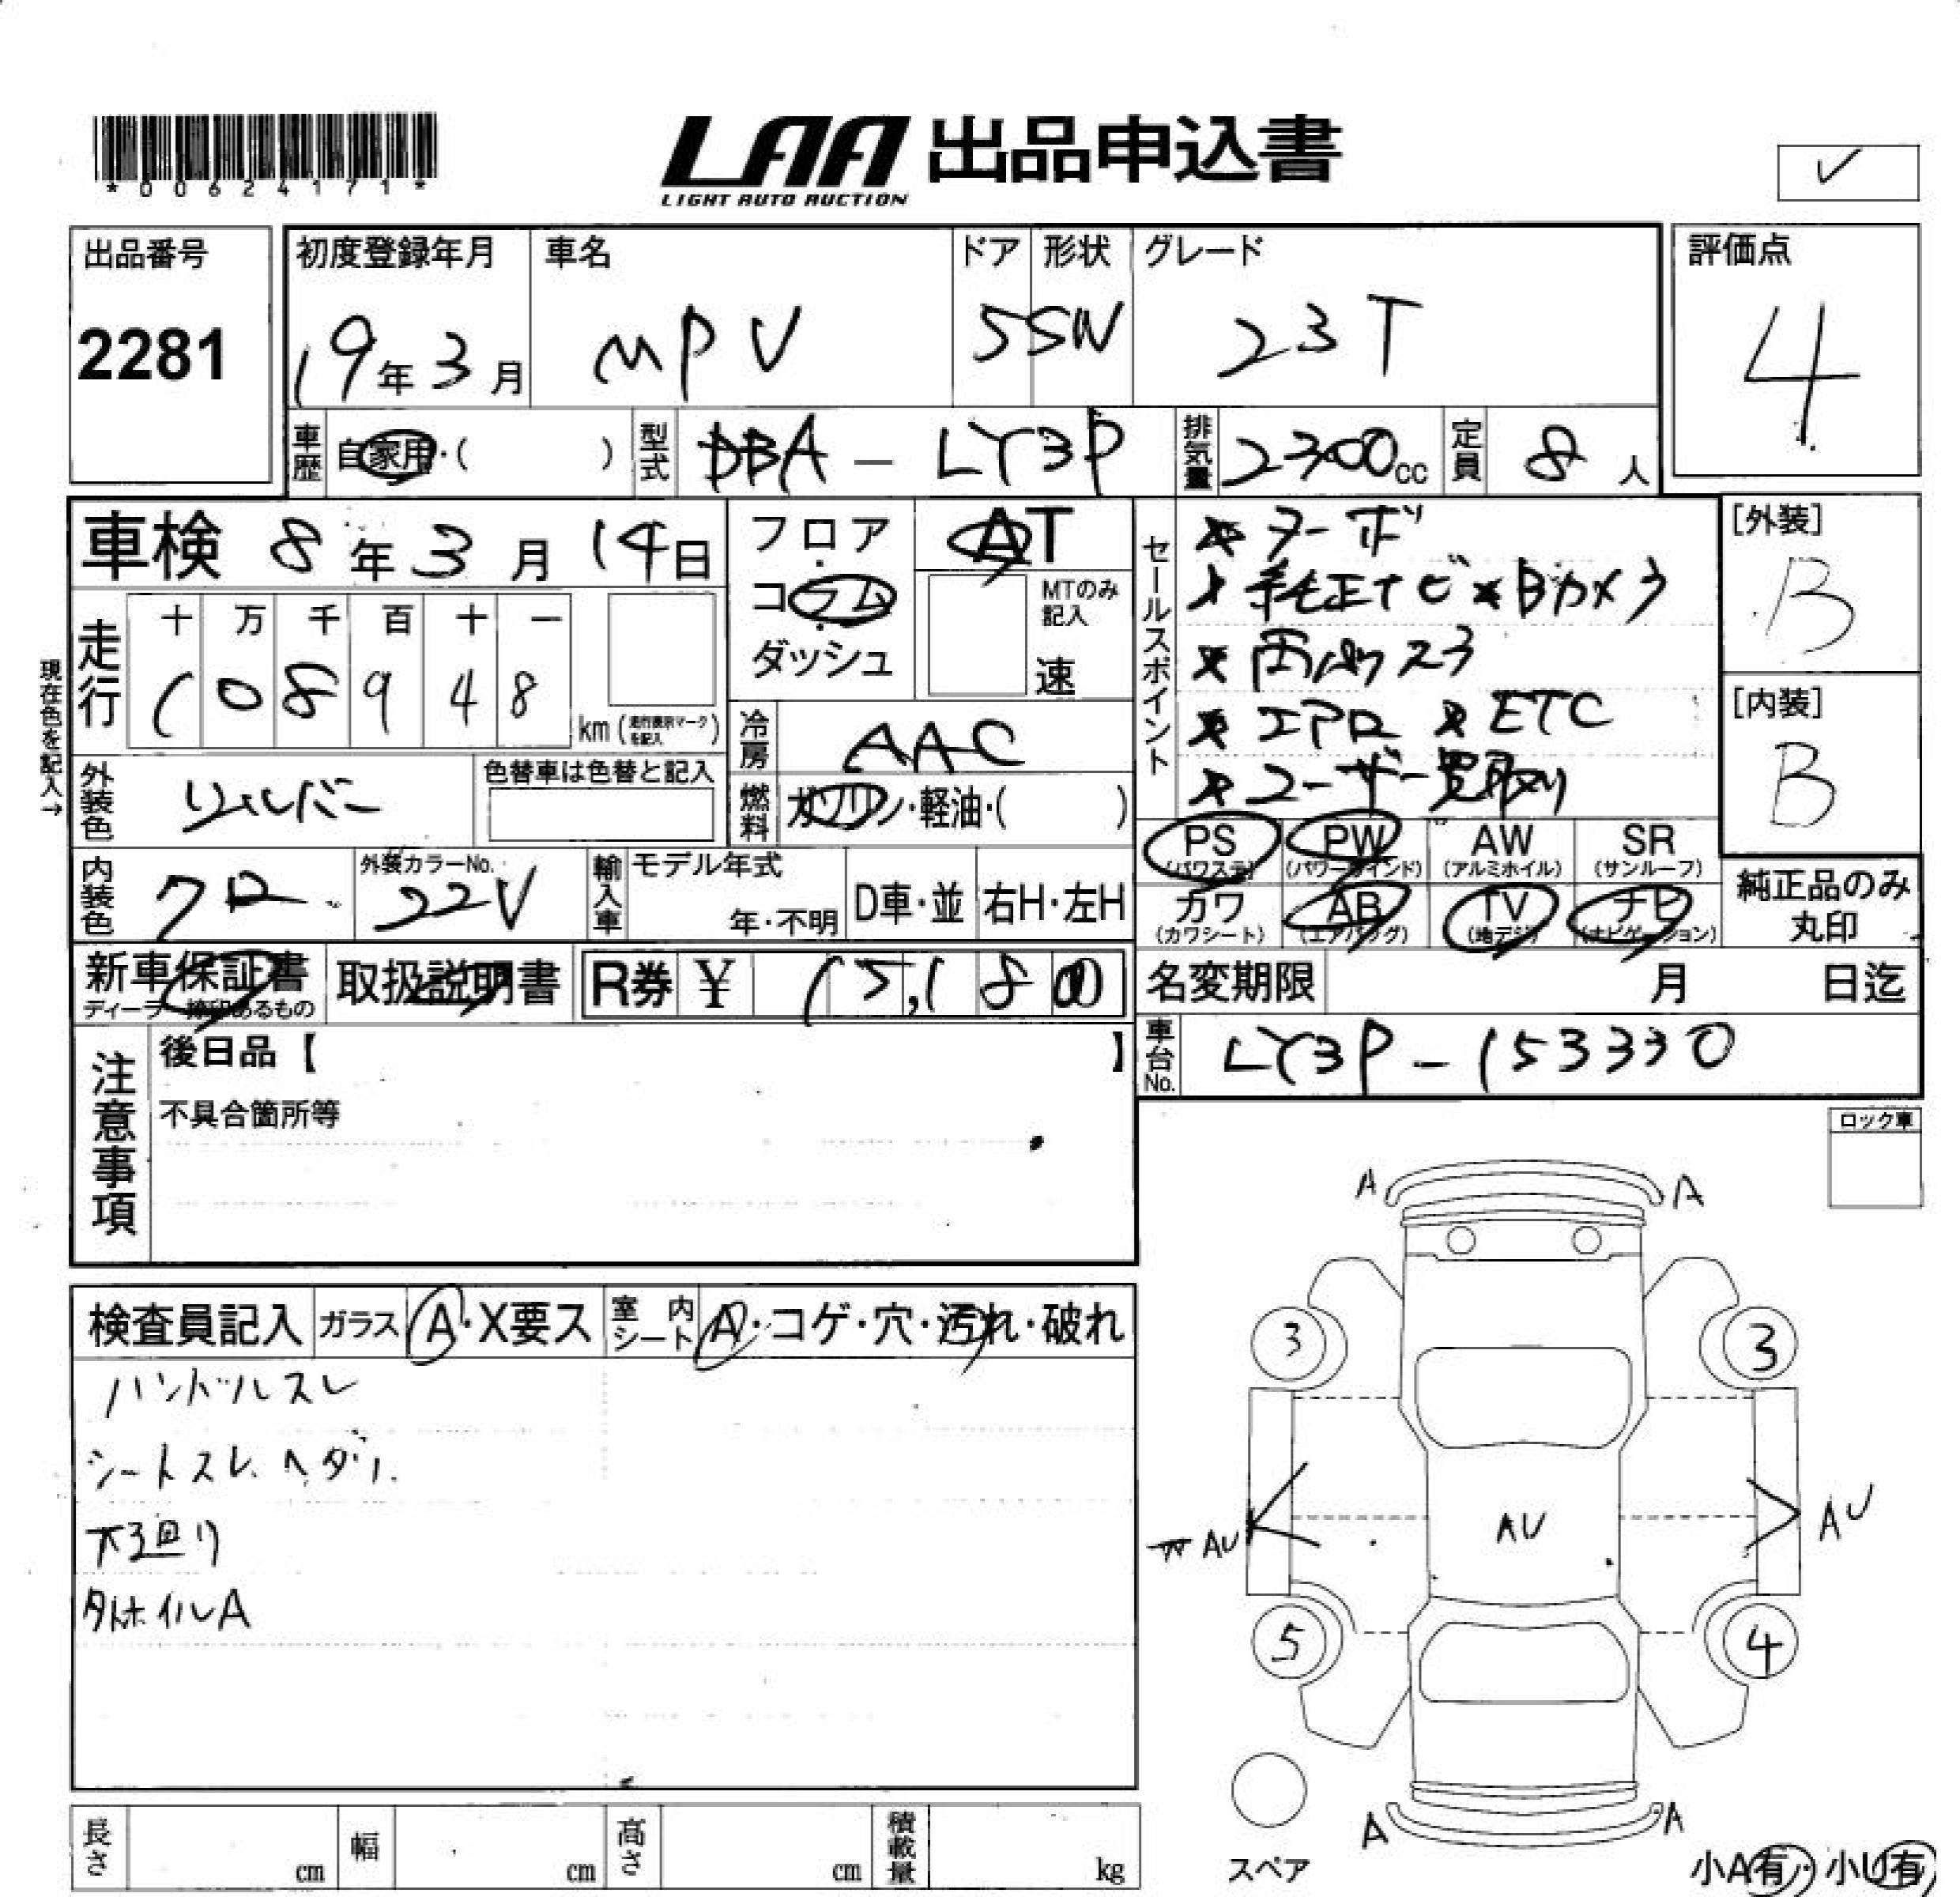 *00624171*
LAA 出品申込書
LIGHT AUTO AUCTION
✓
出品番号
2281
初度登録年月
19年3月
車名
MPV
ドア 形状
5 SW
グレード
23T
評価点
4
車歴 自家用・( )
型式 DBA-LY3P
排気量 2300cc
定員 8人
車検 8年3月14日
フロア
コラム
ダッシュ
AT
MTのみ記入
速
現在色を記入→
走行
十 万 千 百 十 一
1 0 8 9 4 8
km(走行表示マークを記入)
冷房 AAC
外装色 シルバー
色替車は色替と記入
燃料 ガソリン・軽油・( )
内装色 クロ
外装カラーNo.
22V
輸入車
モデル年式
年・不明
D車・並
右H・左H
新車保証書
取扱説明書
R券 ¥ 15,180
セールスポイント
★ターボ
★純正ナビ ★Bカメラ
★両側スラ
★エアロ ★ETC
★ユーザー買取り
[外装]
B
[内装]
B
PS PW AW SR
(パワステ) (パワーウインド) (アルミホイル) (サンルーフ)
カワ AB TV ナビ
(カワシート) (エアバッグ) (地デジ) (ナビゲーション)
純正品のみ
丸印
名変期限 月 日迄
車台No. LY3P-153330
注意事項
後日品【 】
不具合箇所等
ロック車
検査員記入 ガラス A・X要ス 室内シート A・コゲ・穴・汚れ・破れ
ハンドルスレ
シートスレ ヘタリ
下廻り
タイヤホイルA
A A
3 3
AU AU AU
5 4
A A
スペア
小A有・小U有
長さ cm
幅 cm
高さ cm
積載量 kg